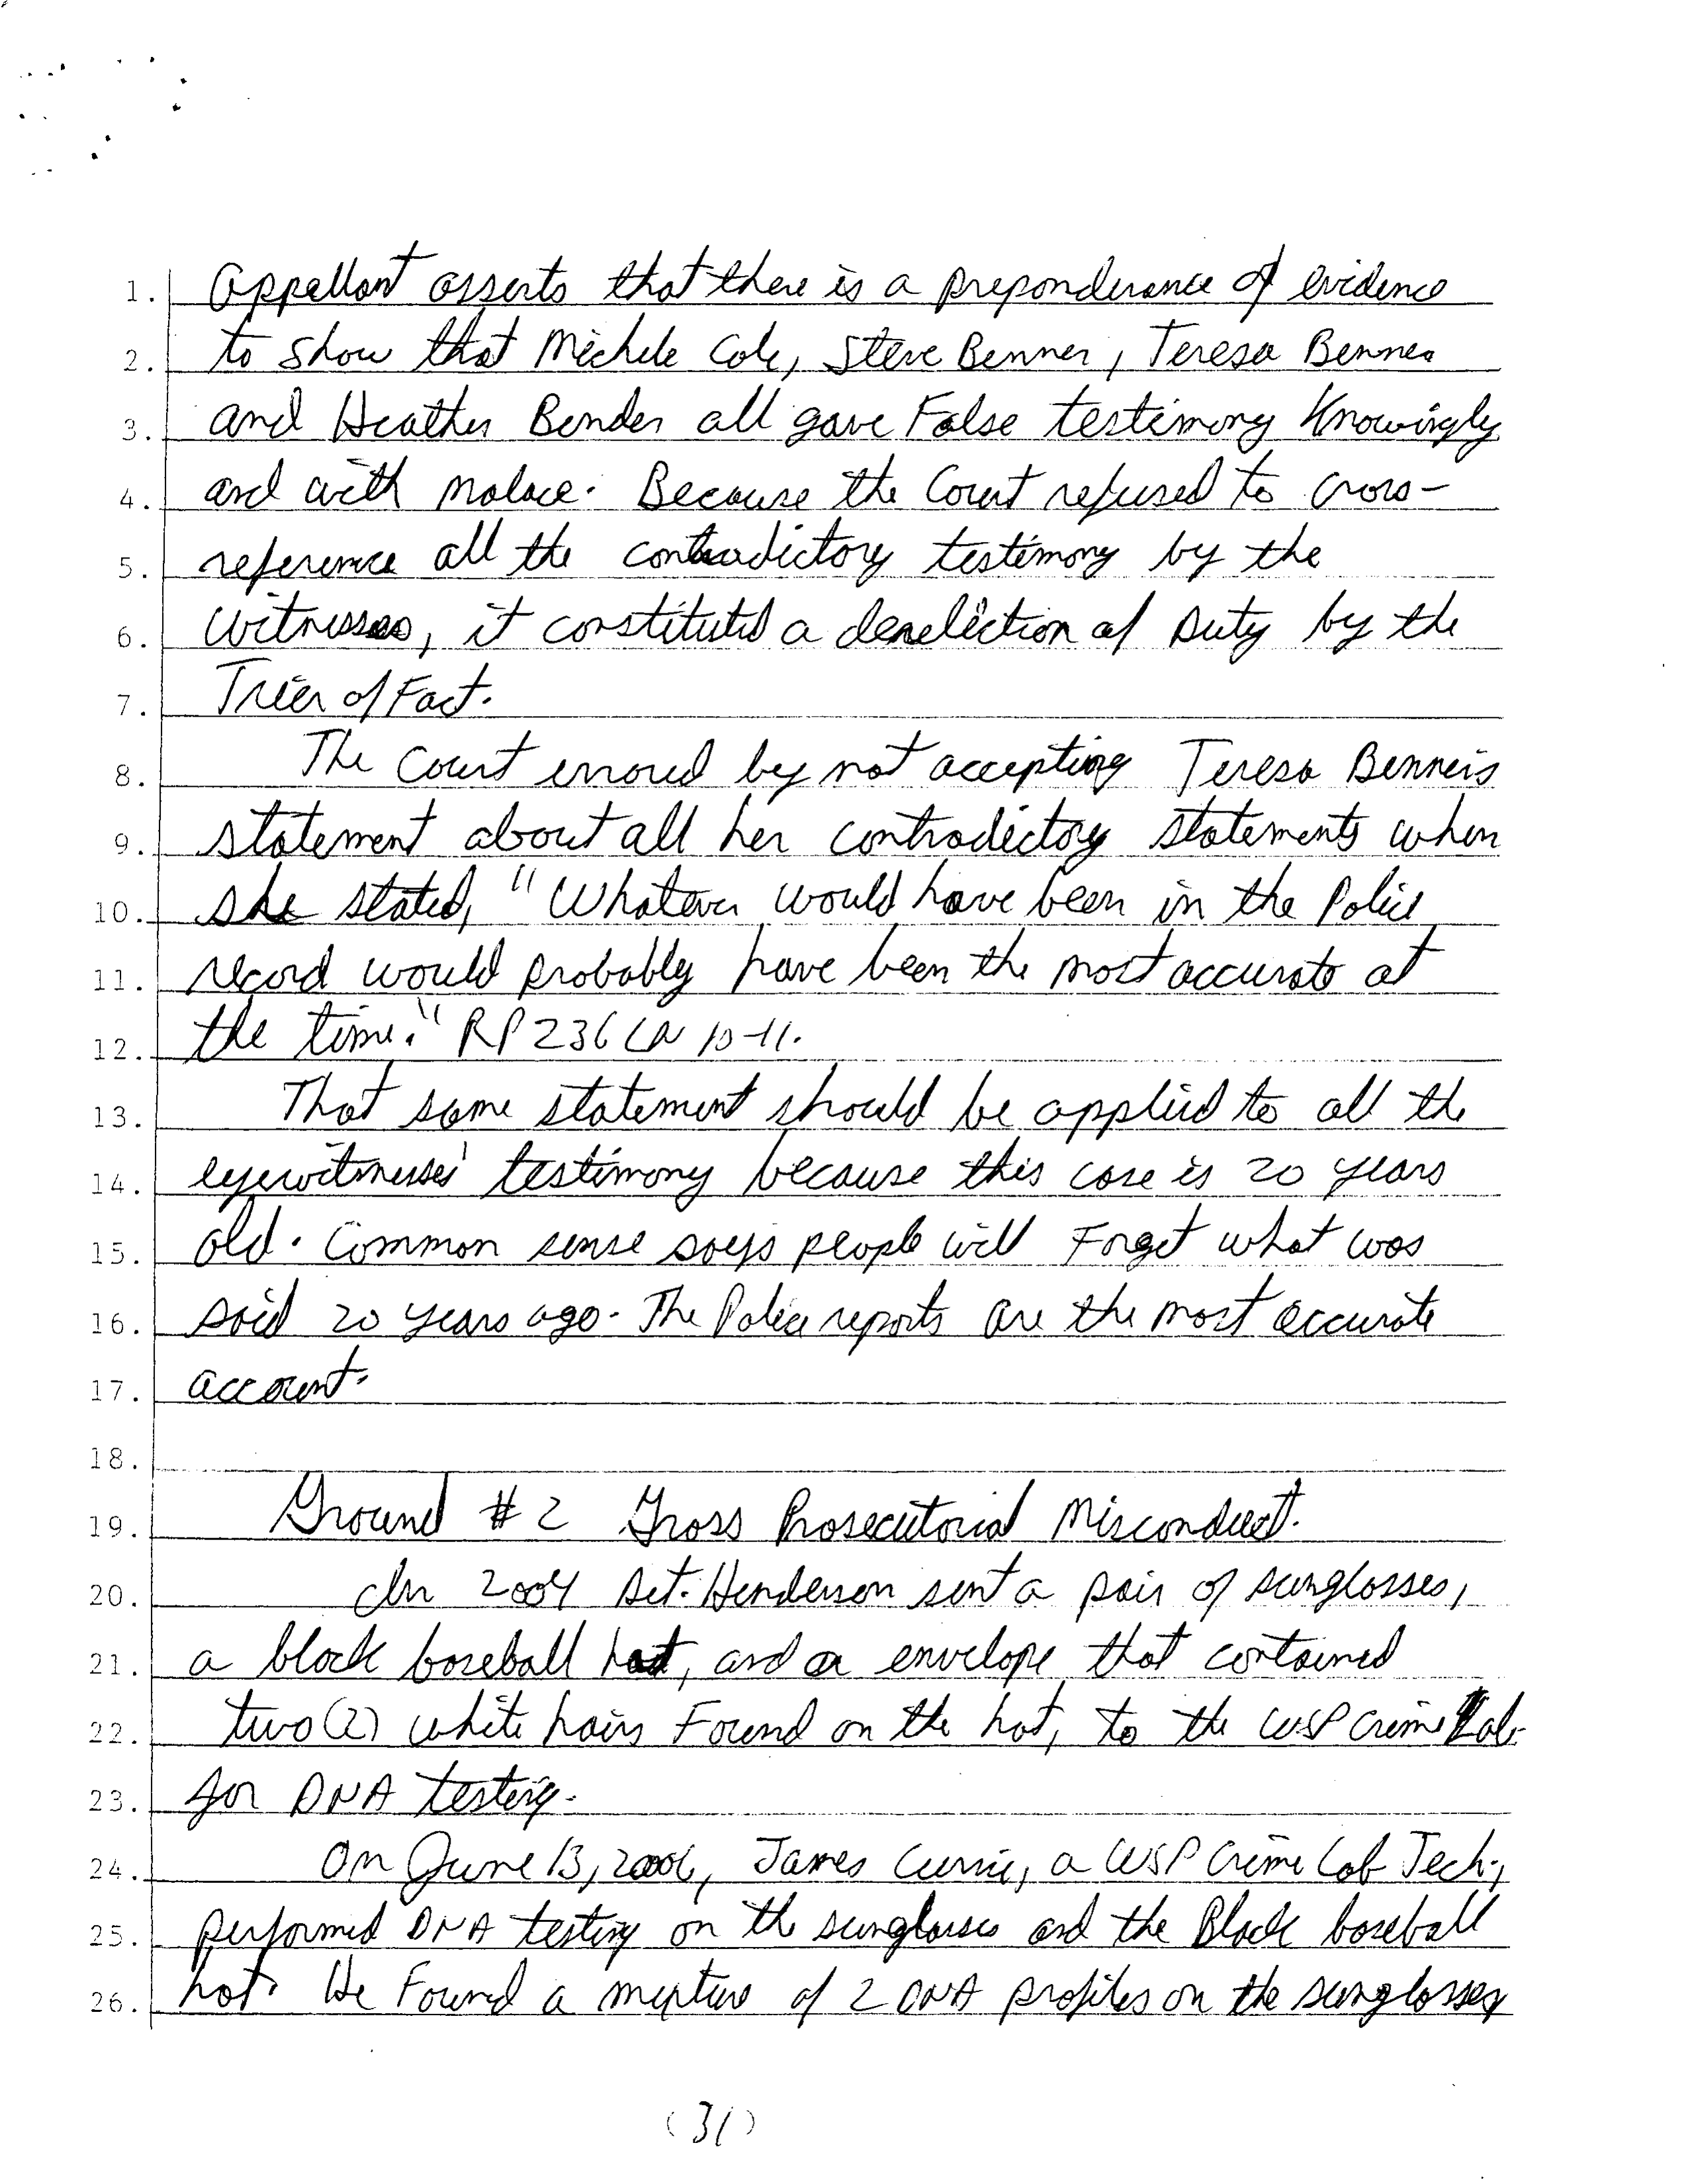 1. Appellant asserts that there is a preponderance of evidence
2. to show that Michele Cole, Steve Benner, Teresa Benner
3. and Heather Bender all gave False testimony Knowingly
4. and with malace. Because the Court refused to cross-
5. reference all the contradictory testimony by the
6. witnesses, it constituted a derelection of Duty by the
7. Trier of Fact.
8. The Court errored by not accepting Teresa Benner's
9. statement about all her contradictory statements when
10. she stated, "Whatever would have been in the Police
11. record would probably have been the most accurate at
12. the time." RP 236 LN 10-11.
13. That same statement should be applied to all the
14. eyewitnesses' testimony because this case is 20 years
15. old. Common sense says people will Forget what was
16. said 20 years ago. The Police reports are the most accurate
17. account.
18.
19. Ground #2 Gross Prosecutorial Misconduct.
20. In 2004 Det. Henderson sent a pair of sunglasses,
21. a black baseball hat, and a envelope that contained
22. two (2) white hairs Found on the hat, to the WSP Crime Lab
23. for DNA testing.
24. On June 13, 2006, James Currie, a WSP Crime Lab Tech.,
25. performed DNA testing on the sunglasses and the Black baseball
26. hat. He Found a mixture of 2 DNA profiles on the sunglasses
(31)